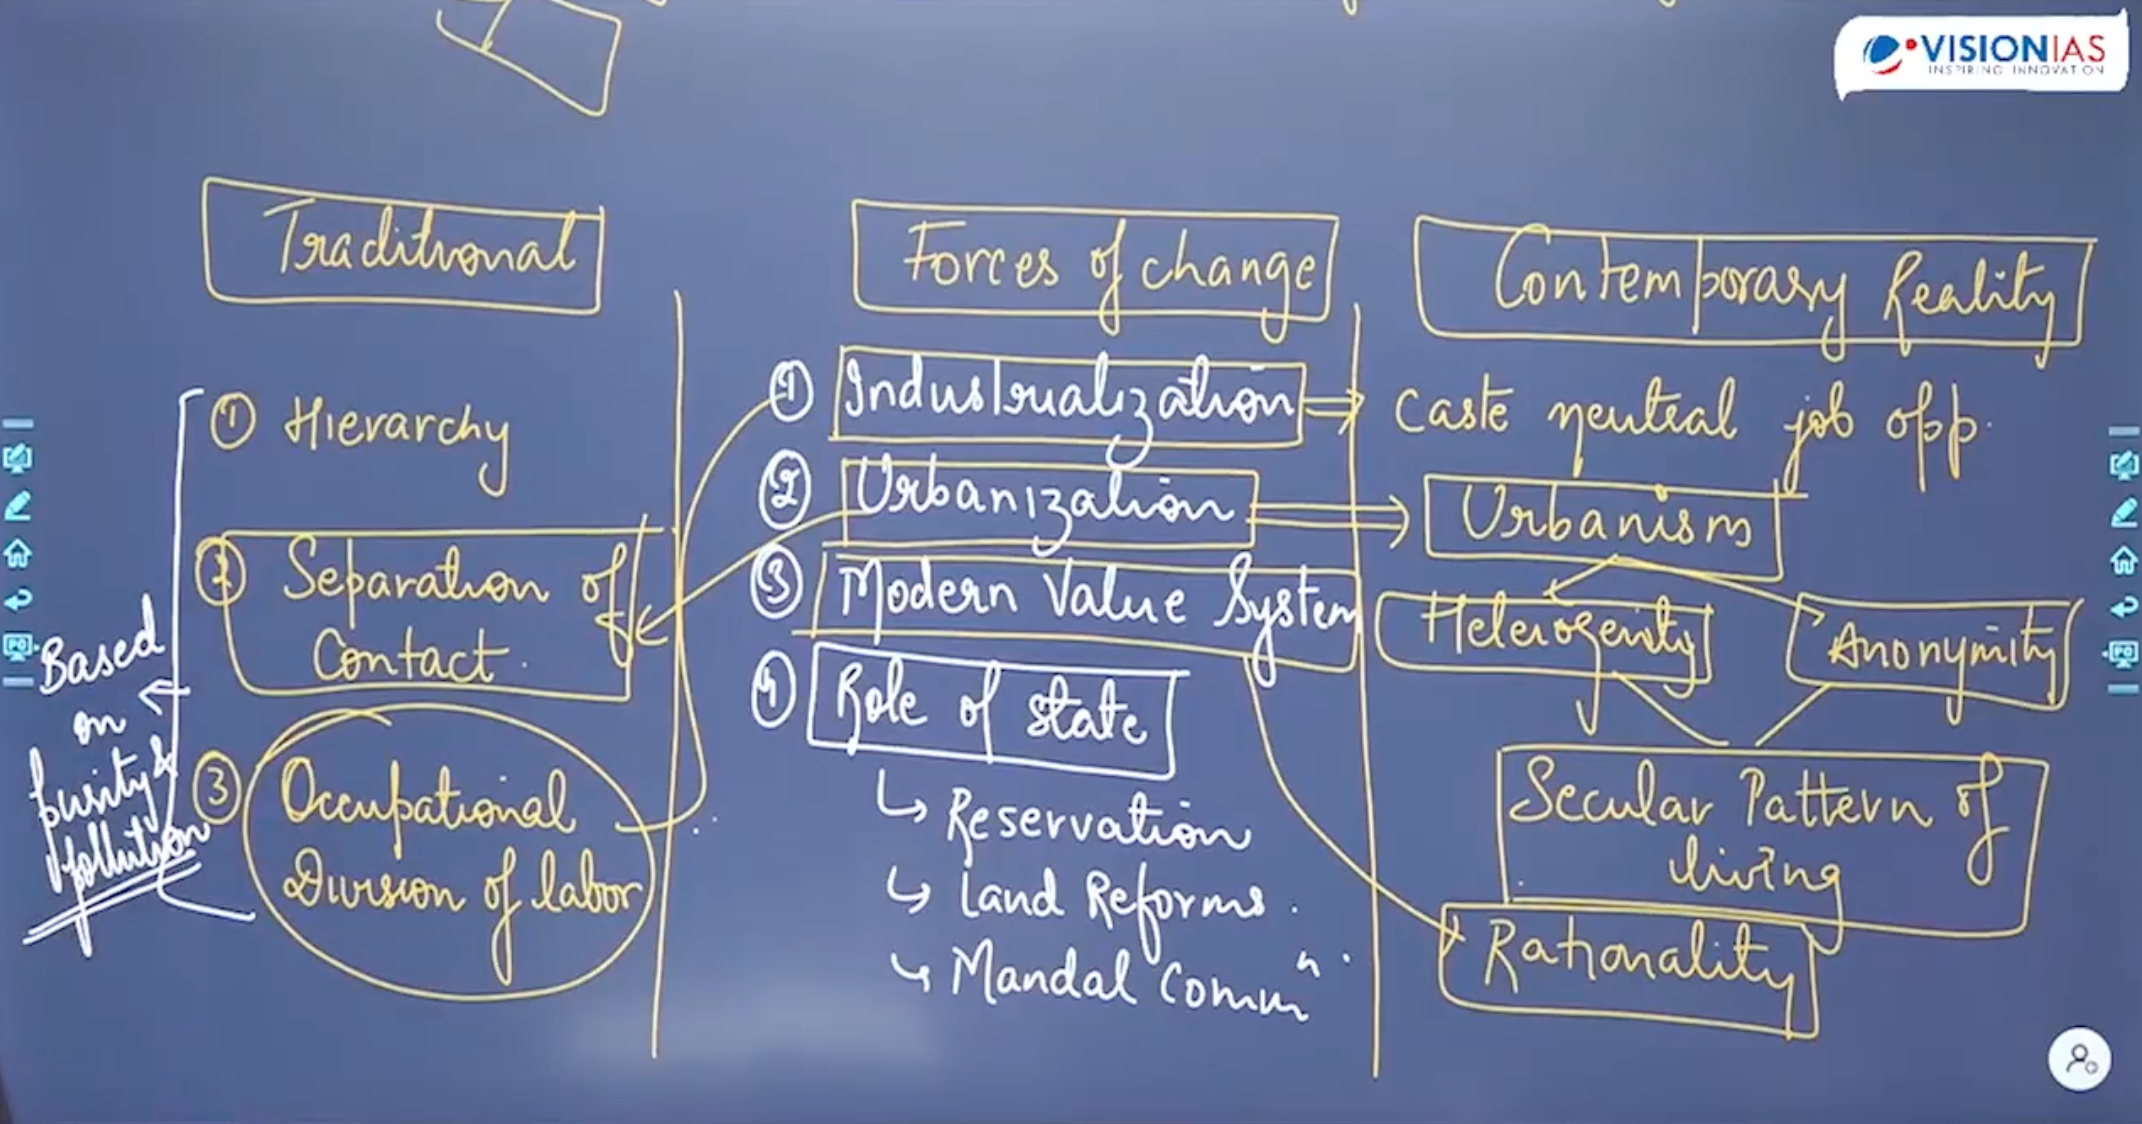 VISIONIAS
INSPIRING INNOVATION
Traditional
① Hierarchy
② Separation of
Contact.
③ Occupational
Division of labor
Based
on
purity &
pollution
Forces of change
① Industrialization
② Urbanization
③ Modern Value System
④ Role of state
Reservation
Land Reforms.
Mandal Commⁿ.
Contemporary Reality
Caste neutral job opp.
Urbanism
Heterogenity
Anonymity
Secular Pattern of
living
Rationality